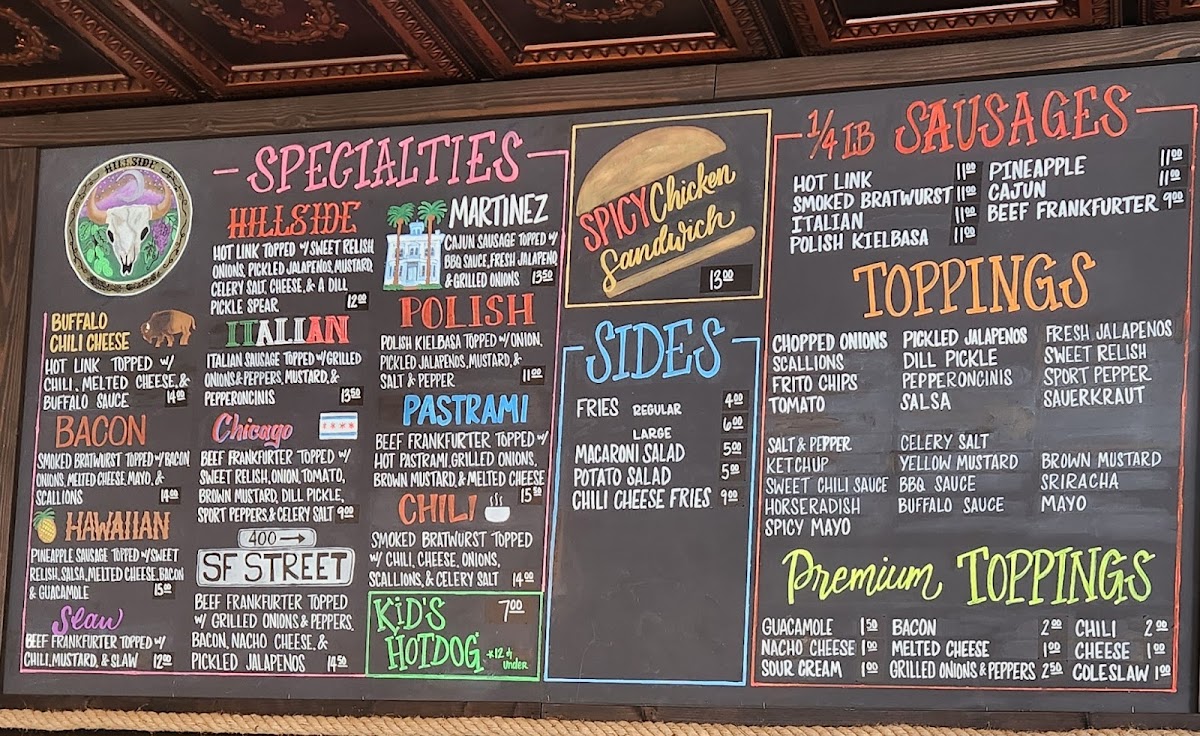 HILLSIDE
SPECIALTIES
HILLSIDE
HOT LINK TOPPED W/ SWEET RELISH
ONIONS, PICKLED JALAPENOS, MUSTARD,
CELERY SALT, CHEESE, & A DILL
PICKLE SPEAR 12.00
MARTINEZ
CAJUN SAUSAGE TOPPED W/
BBQ SAUCE, FRESH JALAPENO
& GRILLED ONIONS 13.50
BUFFALO
CHILI CHEESE
HOT LINK TOPPED W/
CHILI, MELTED CHEESE, &
BUFFALO SAUCE 14.00
ITALIAN
ITALIAN SAUSAGE TOPPED W/ GRILLED
ONIONS & PEPPERS, MUSTARD, &
PEPERONCINIS 13.50
POLISH
POLISH KIELBASA TOPPED W/ ONION,
PICKLED JALAPENOS, MUSTARD, &
SALT & PEPPER 11.00
BACON
SMOKED BRATWURST TOPPED W/ BACON
ONIONS, MELTED CHEESE, MAYO, &
SCALLIONS 14.00
Chicago
BEEF FRANKFURTER TOPPED W/
SWEET RELISH, ONION, TOMATO,
BROWN MUSTARD, DILL PICKLE,
SPORT PEPPERS, & CELERY SALT 9.00
PASTRAMI
BEEF FRANKFURTER TOPPED W/
HOT PASTRAMI, GRILLED ONIONS,
BROWN MUSTARD, & MELTED CHEESE
15.50
HAWAIIAN
PINEAPPLE SAUSAGE TOPPED W/ SWEET
RELISH, SALSA, MELTED CHEESE, BACON
& GUACAMOLE 15.00
400 →
SF STREET
BEEF FRANKFURTER TOPPED
W/ GRILLED ONIONS & PEPPERS,
BACON, NACHO CHEESE, &
PICKLED JALAPENOS 14.50
CHILI
SMOKED BRATWURST TOPPED
W/ CHILI, CHEESE, ONIONS,
SCALLIONS, & CELERY SALT 14.00
Slaw
BEEF FRANKFURTER TOPPED W/
CHILI, MUSTARD, & SLAW 12.00
KiD'S 7.00
HOTDOG *12 & under
SPICY Chicken
Sandwich
13.00
SIDES
FRIES REGULAR 4.00
LARGE 6.00
MACARONI SALAD 5.00
POTATO SALAD 5.00
CHILI CHEESE FRIES 9.00
1/4 LB SAUSAGES
HOT LINK 11.00
SMOKED BRATWURST 11.00
ITALIAN 11.00
POLISH KIELBASA 11.00
PINEAPPLE 11.00
CAJUN 11.00
BEEF FRANKFURTER 9.00
TOPPINGS
CHOPPED ONIONS PICKLED JALAPENOS FRESH JALAPENOS
SCALLIONS DILL PICKLE SWEET RELISH
FRITO CHIPS PEPPERONCINIS SPORT PEPPER
TOMATO SALSA SAUERKRAUT
SALT & PEPPER CELERY SALT
KETCHUP YELLOW MUSTARD BROWN MUSTARD
SWEET CHILI SAUCE BBQ SAUCE SRIRACHA
HORSERADISH BUFFALO SAUCE MAYO
SPICY MAYO
Premium TOPPINGS
GUACAMOLE 1.50 BACON 2.00 CHILI 2.00
NACHO CHEESE 1.00 MELTED CHEESE 1.00 CHEESE 1.00
SOUR CREAM 1.00 GRILLED ONIONS & PEPPERS 2.50 COLESLAW 1.00